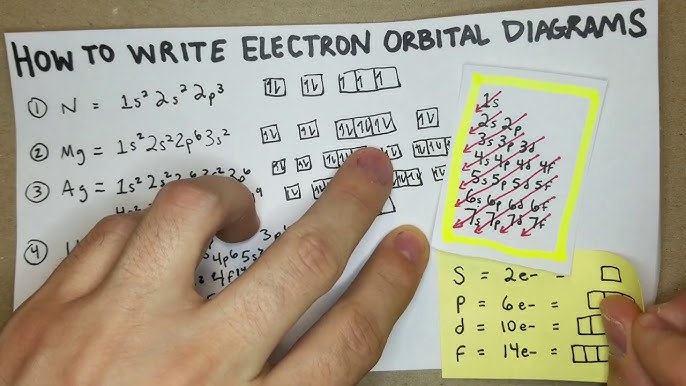 HOW TO WRITE ELECTRON ORBITAL DIAGRAMS
① N = 1s² 2s² 2p³
② Mg = 1s² 2s² 2p⁶ 3s²
③ Ag = 1s² 2s²
④
3p⁶
4p⁶ 5s²
4f¹⁴
1s
2s 2p
3s 3p 3d
4s 4p 4d 4f
5s 5p 5d 5f
6s 6p 6d 6f
7s 7p 7d 7f
S = 2e- =
P = 6e- =
d = 10e- =
f = 14e- =